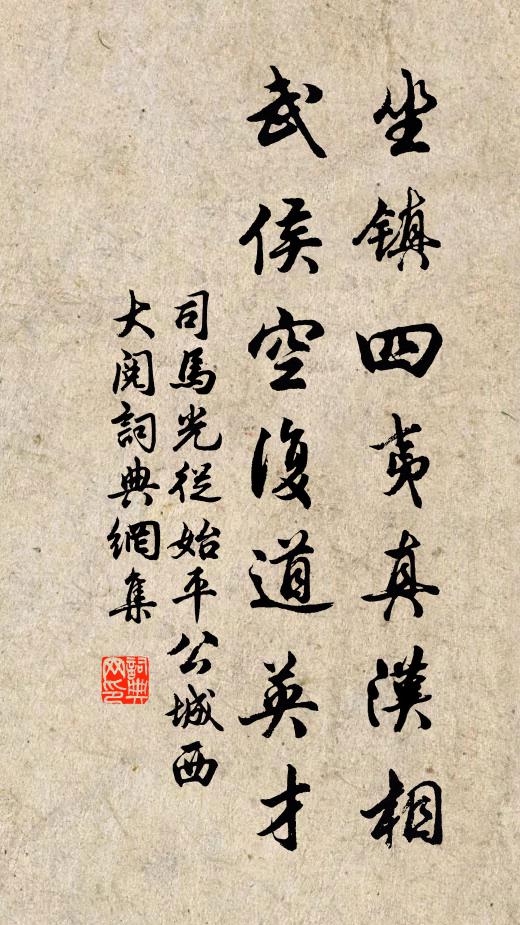 坐镇四夷真漢相
武侯空復道英才
司馬光從始平公城西
大閱詞典網集
詞典
网印